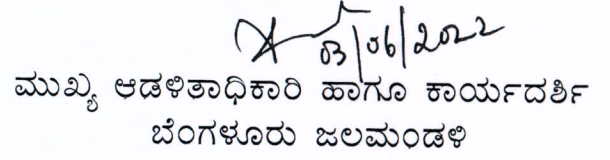 03/06/2022
ಮುಖ್ಯ ಆಡಳಿತಾಧಿಕಾರಿ ಹಾಗೂ ಕಾರ್ಯದರ್ಶಿ
ಬೆಂಗಳೂರು ಜಲಮಂಡಳಿ